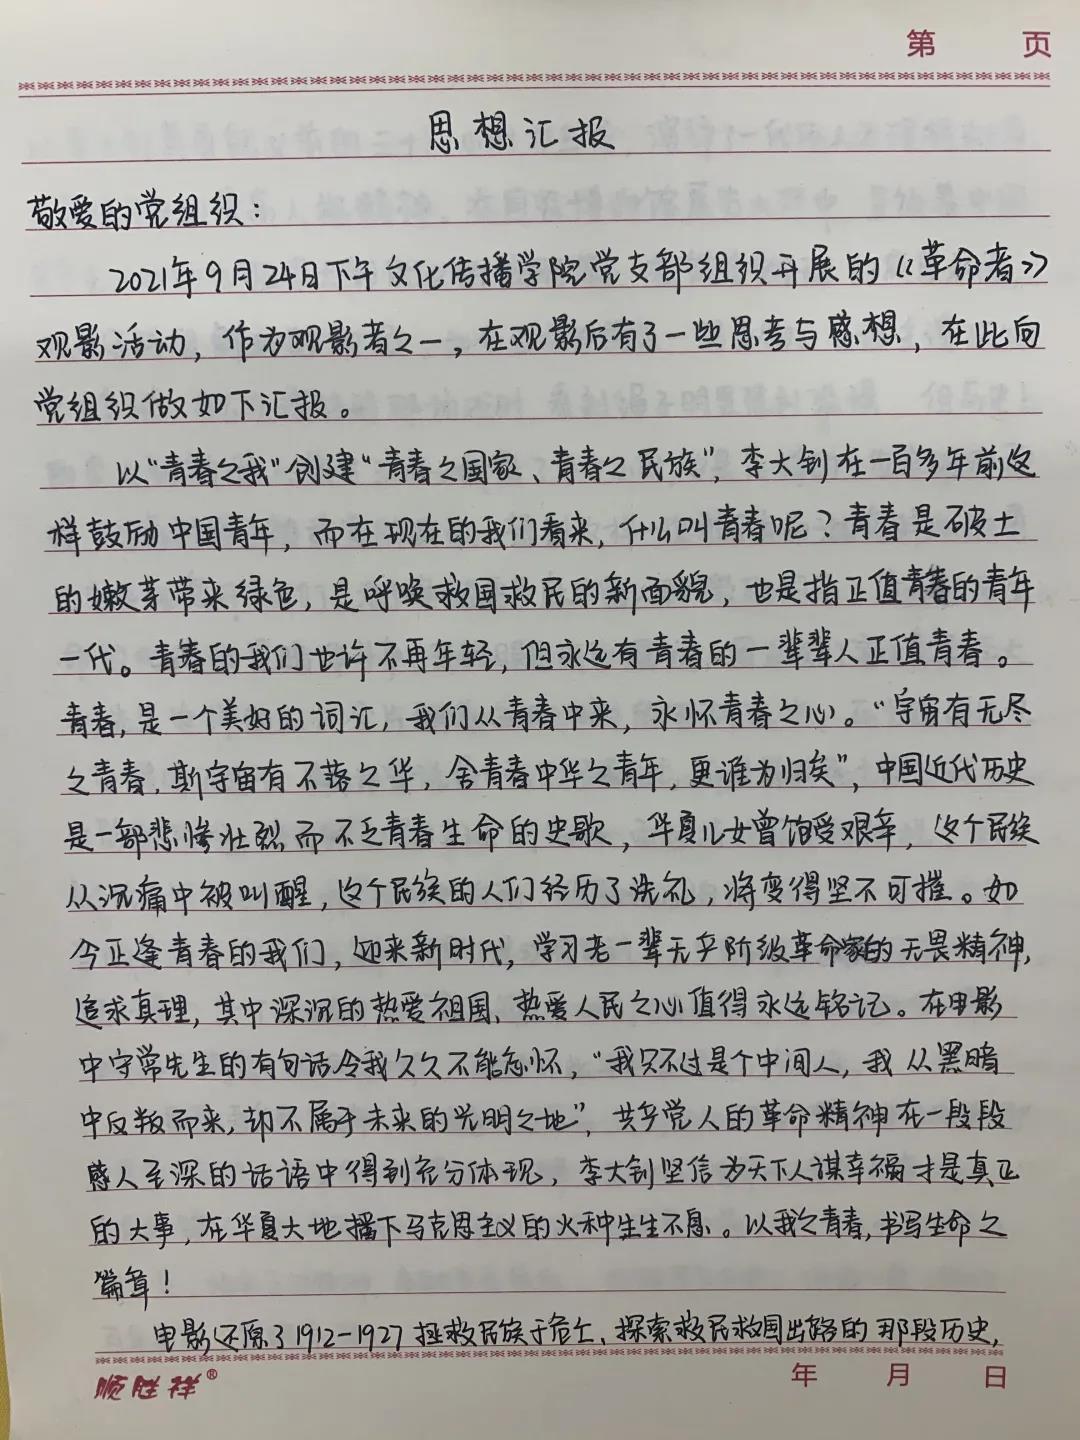 第 页
思想汇报
敬爱的党组织：
2021年9月24日下午文化传播学院党支部组织开展的《革命者》
观影活动，作为观影者之一，在观影后有了一些思考与感想，在此向
党组织做如下汇报。
以“青春之我”创建“青春之国家、青春之民族”，李大钊在一百多年前这
样鼓励中国青年，而在现在的我们看来，什么叫青春呢？青春是破土
的嫩芽带来绿色，是呼唤救国救民的新面貌，也是指正值青春的青年
一代。青春的我们也许不再年轻，但永远有青春的一辈辈人正值青春。
青春，是一个美好的词汇，我们从青春中来，永怀青春之心。“宇宙有无尽
之青春，斯宇宙有不落之华，舍青春中华之青年，更谁为归矣”，中国近代历史
是一部悲惨壮烈而不乏青春生命的史歌，华夏儿女曾饱受艰辛，这个民族
从沉痛中被叫醒，这个民族的人们经历了洗礼，将变得坚不可摧。如
今正逢青春的我们，迎来新时代，学习老一辈无产阶级革命家的无畏精神，
追求真理，其中深沉的热爱祖国、热爱人民之心值得永远铭记。在电影
中守常先生的有句话令我久久不能忘怀，“我只不过是个中间人，我从黑暗
中反叛而来，却不属于未来的光明之地”，共产党人的革命精神在一段段
感人至深的话语中得到充分体现，李大钊坚信为天下人谋幸福才是真正
的大事，在华夏大地播下马克思主义的火种生生不息。以我之青春，书写生命之
篇章！
电影还原了1912-1927拯救民族于危亡、探索救民救国出路的那段历史，
顺胜祥® 年 月 日